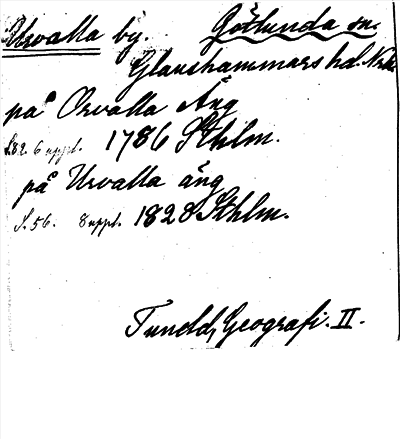 Urvalla by. Götlunda sn.
Glanshammars hd. Nrke
på Orvalla Äng
s. 82. 6 uppl. 1786 Sthlm.
på Urvalla äng
s. 56. 8 uppl. 1828 Sthlm.
Tuneld, Geografi. II.